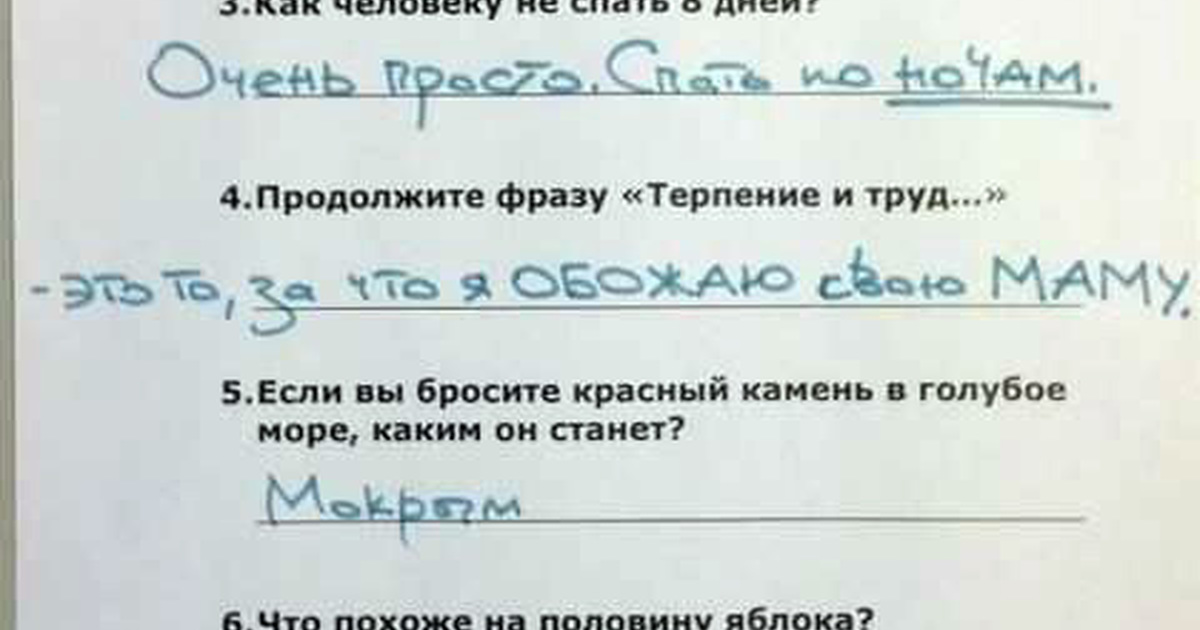 3.Как человеку не спать 8 дней?
Очень просто. Спать по ночАм.
4.Продолжите фразу «Терпение и труд...»
- это то, за что я ОБОЖАЮ свою МАМУ.
5.Если вы бросите красный камень в голубое
море, каким он станет?
Мокрым
6.Что похоже на половину яблока?